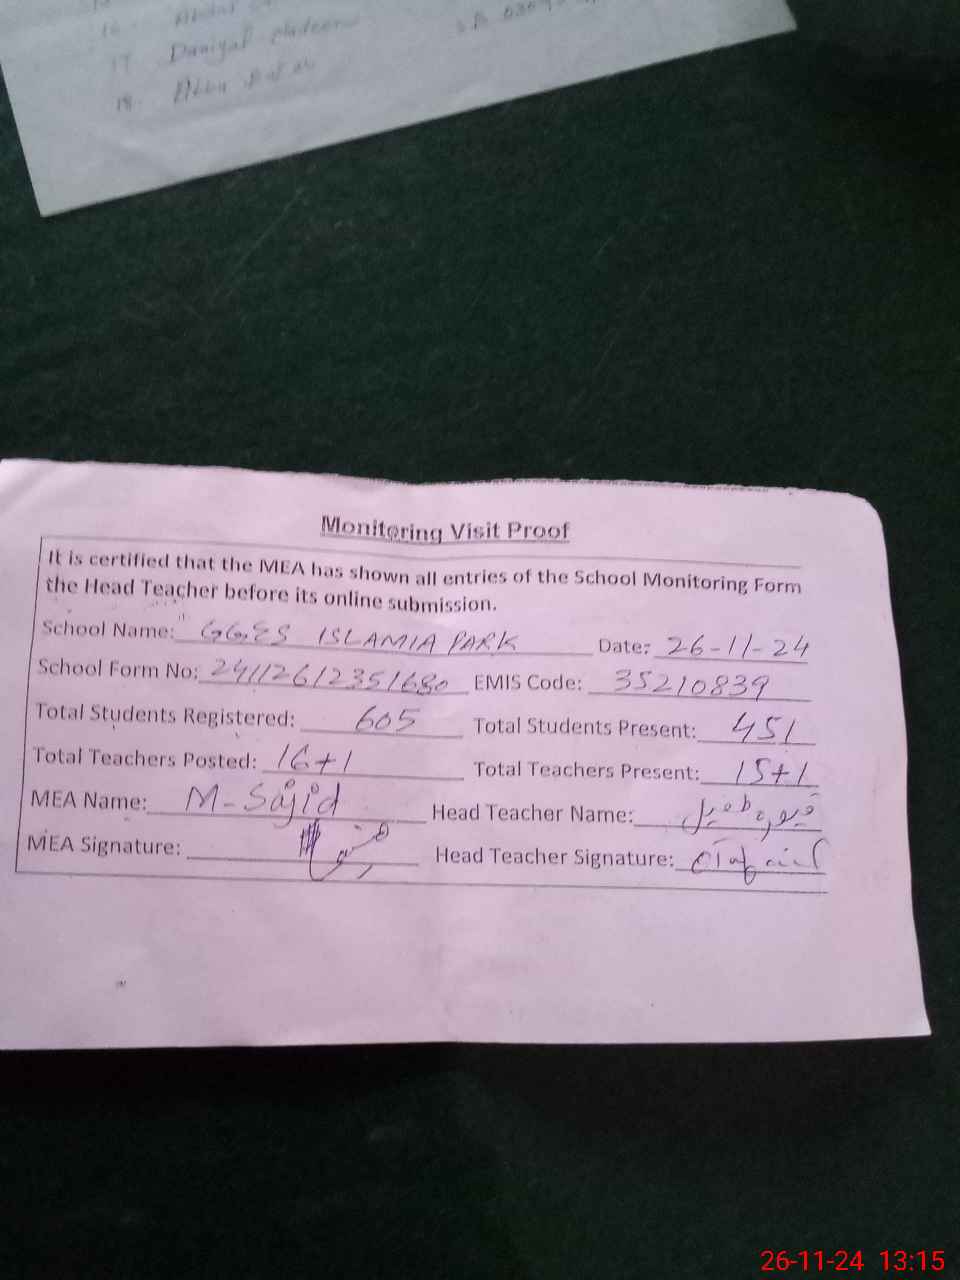 17 Daniyal
18.
Monitoring Visit Proof
It is certified that the MEA has shown all entries of the School Monitoring Form
the Head Teacher before its online submission.
School Name: GGES ISLAMIA PARK Date: 26-11-24
School Form No: 24112612351680 EMIS Code: 35210839
Total Students Registered: 605 Total Students Present: 451
Total Teachers Posted: 16+1 Total Teachers Present: 15+1
MEA Name: M-Sajid Head Teacher Name:
MEA Signature: Head Teacher Signature:
26-11-24 13:15